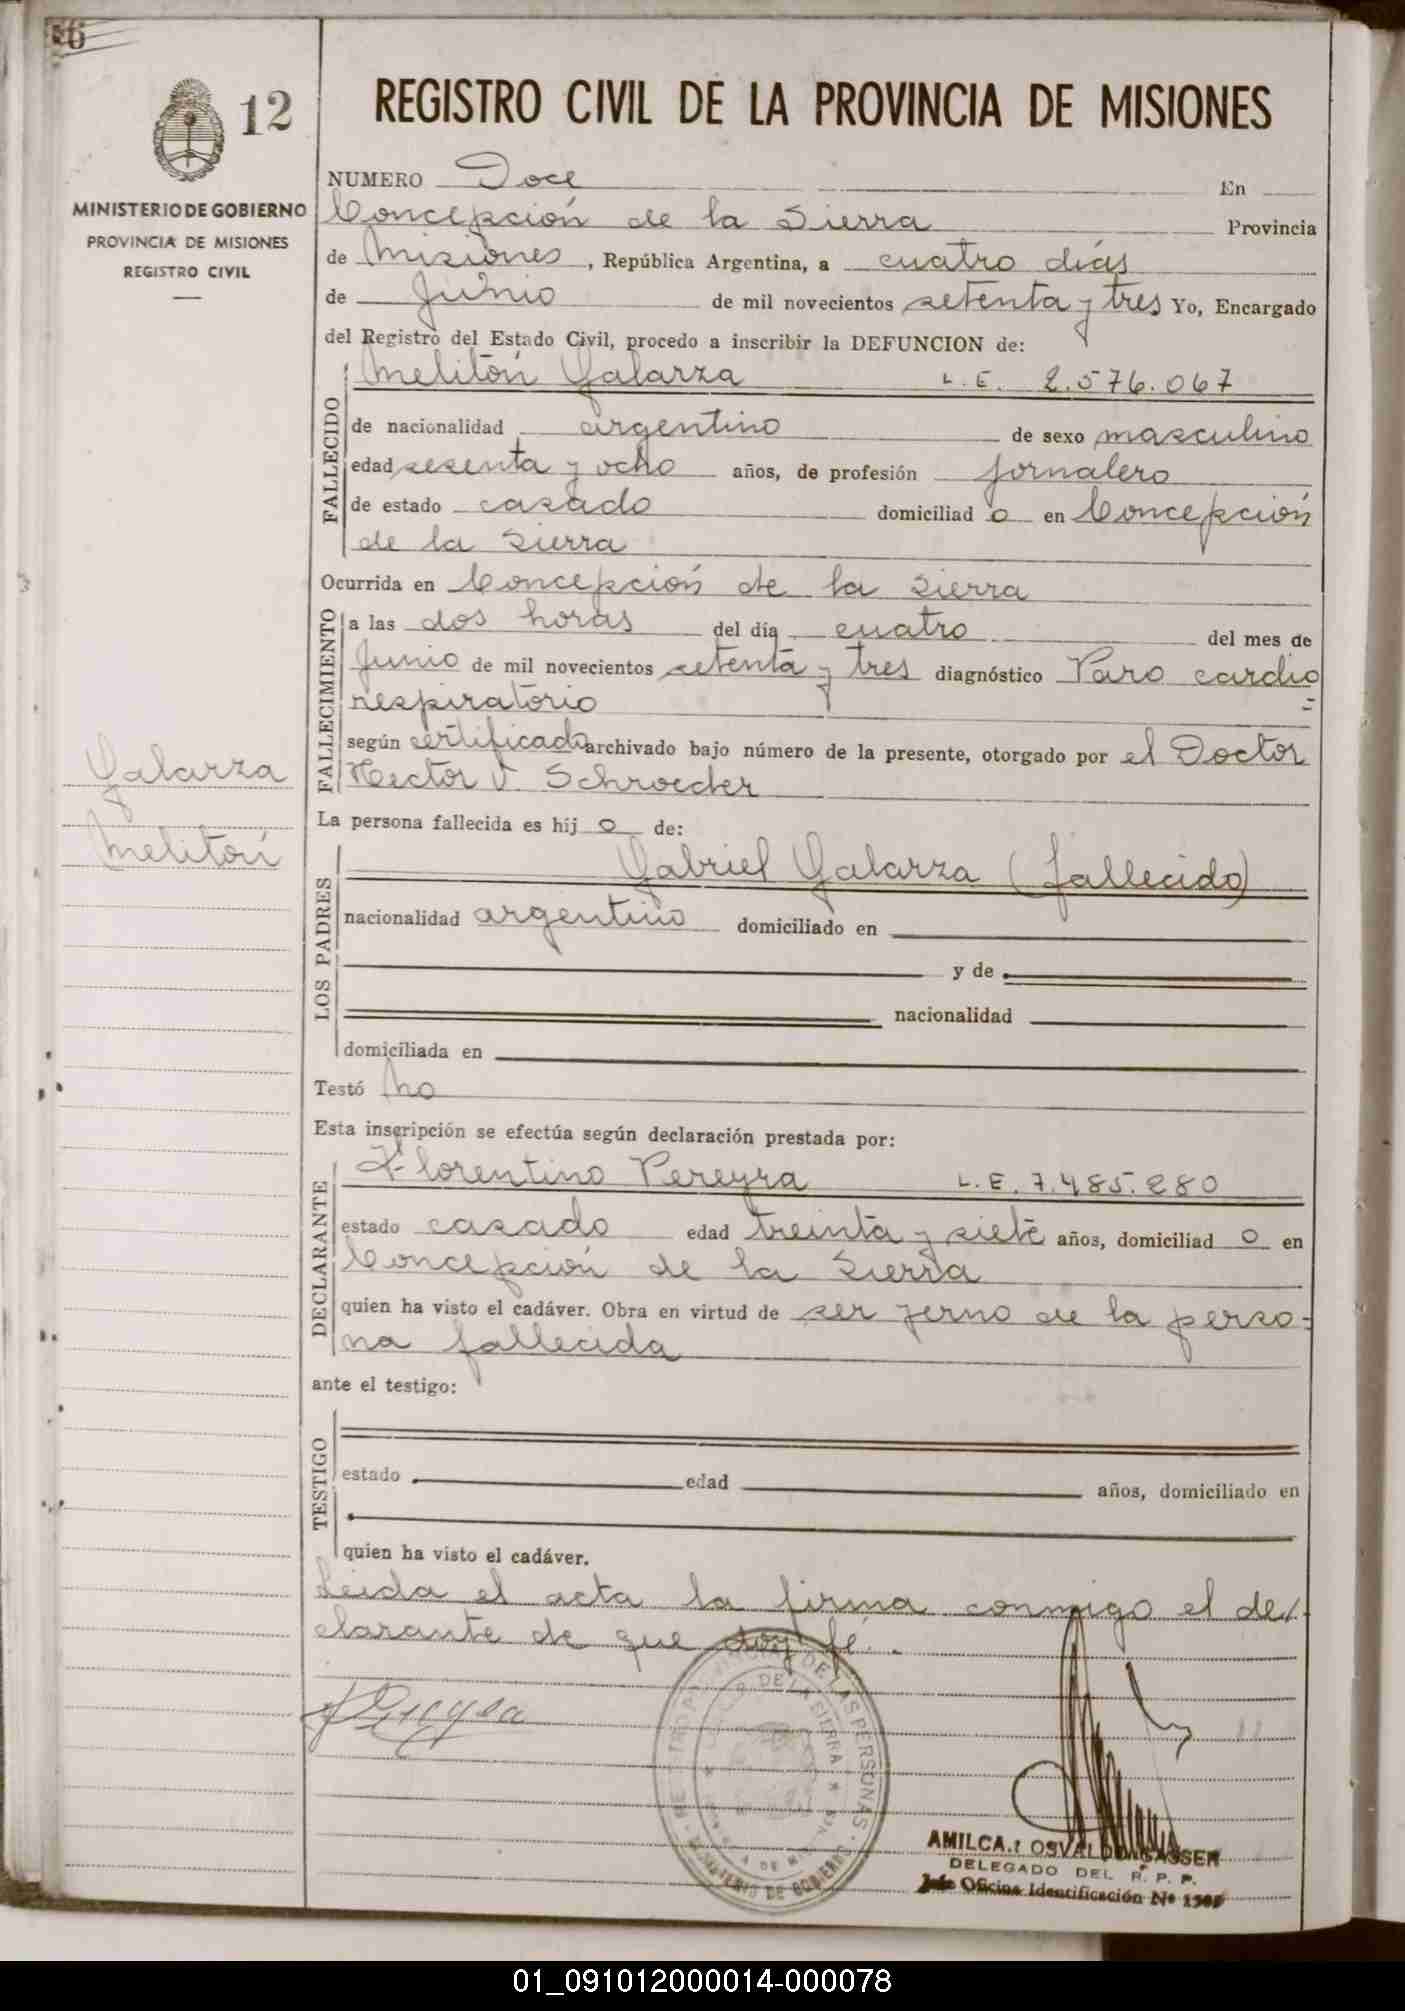 12
MINISTERIO DE GOBIERNO
PROVINCIA DE MISIONES
REGISTRO CIVIL
Galarza
Melitón
REGISTRO CIVIL DE LA PROVINCIA DE MISIONES
NUMERO Doce En
Concepción de la Sierra Provincia
de Misiones, República Argentina, a cuatro días
de Junio de mil novecientos setenta y tres Yo, Encargado
del Registro del Estado Civil, procedo a inscribir la DEFUNCION de:
FALLECIDO
Melitón Galarza L.E. 2.576.067
de nacionalidad argentino de sexo masculino
edad sesenta y ocho años, de profesión jornalero
de estado casado domiciliad o en Concepción
de la Sierra
Ocurrida en Concepción de la Sierra
FALLECIMIENTO
a las dos horas del día cuatro del mes de
Junio de mil novecientos setenta y tres diagnóstico Paro cardio
respiratorio
según certificado archivado bajo número de la presente, otorgado por el Doctor
Hector V. Schroeder
La persona fallecida es hij o de:
LOS PADRES
Gabriel Galarza (fallecido)
nacionalidad argentino domiciliado en
y de
nacionalidad
domiciliada en
Testó no
Esta inscripción se efectúa según declaración prestada por:
DECLARANTE
Florentino Pereyra L.E. 7.485.280
estado casado edad treinta y siete años, domiciliad o en
Concepción de la Sierra
quien ha visto el cadáver. Obra en virtud de ser yerno de la perso=
na fallecida
ante el testigo:
TESTIGO
estado edad años, domiciliado en
quien ha visto el cadáver.
Leida el acta la firma conmigo el de/-
clarante de que doy fé.-
DE LAS PERSONAS
DE LA SIERRA
MINISTERIO DE GOBIERNO
AMILCAR OSVALDO GASSER
DELEGADO DEL R. P. P.
Jefe Oficina Identificación Nº
01_091012000014-000078